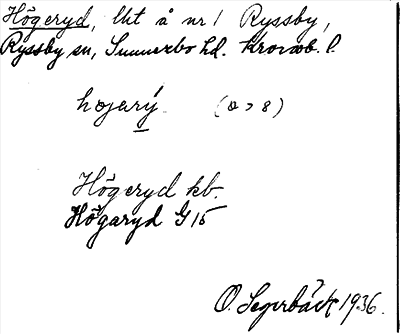 Högeryd, lht å nr 1 Ryssby,
Ryssby sn, Sunnerbo hd. Kronob. l.
højarý (ø > 8)
Högeryd kb.
Högaryd G 15
O. Segerbäck 1936.